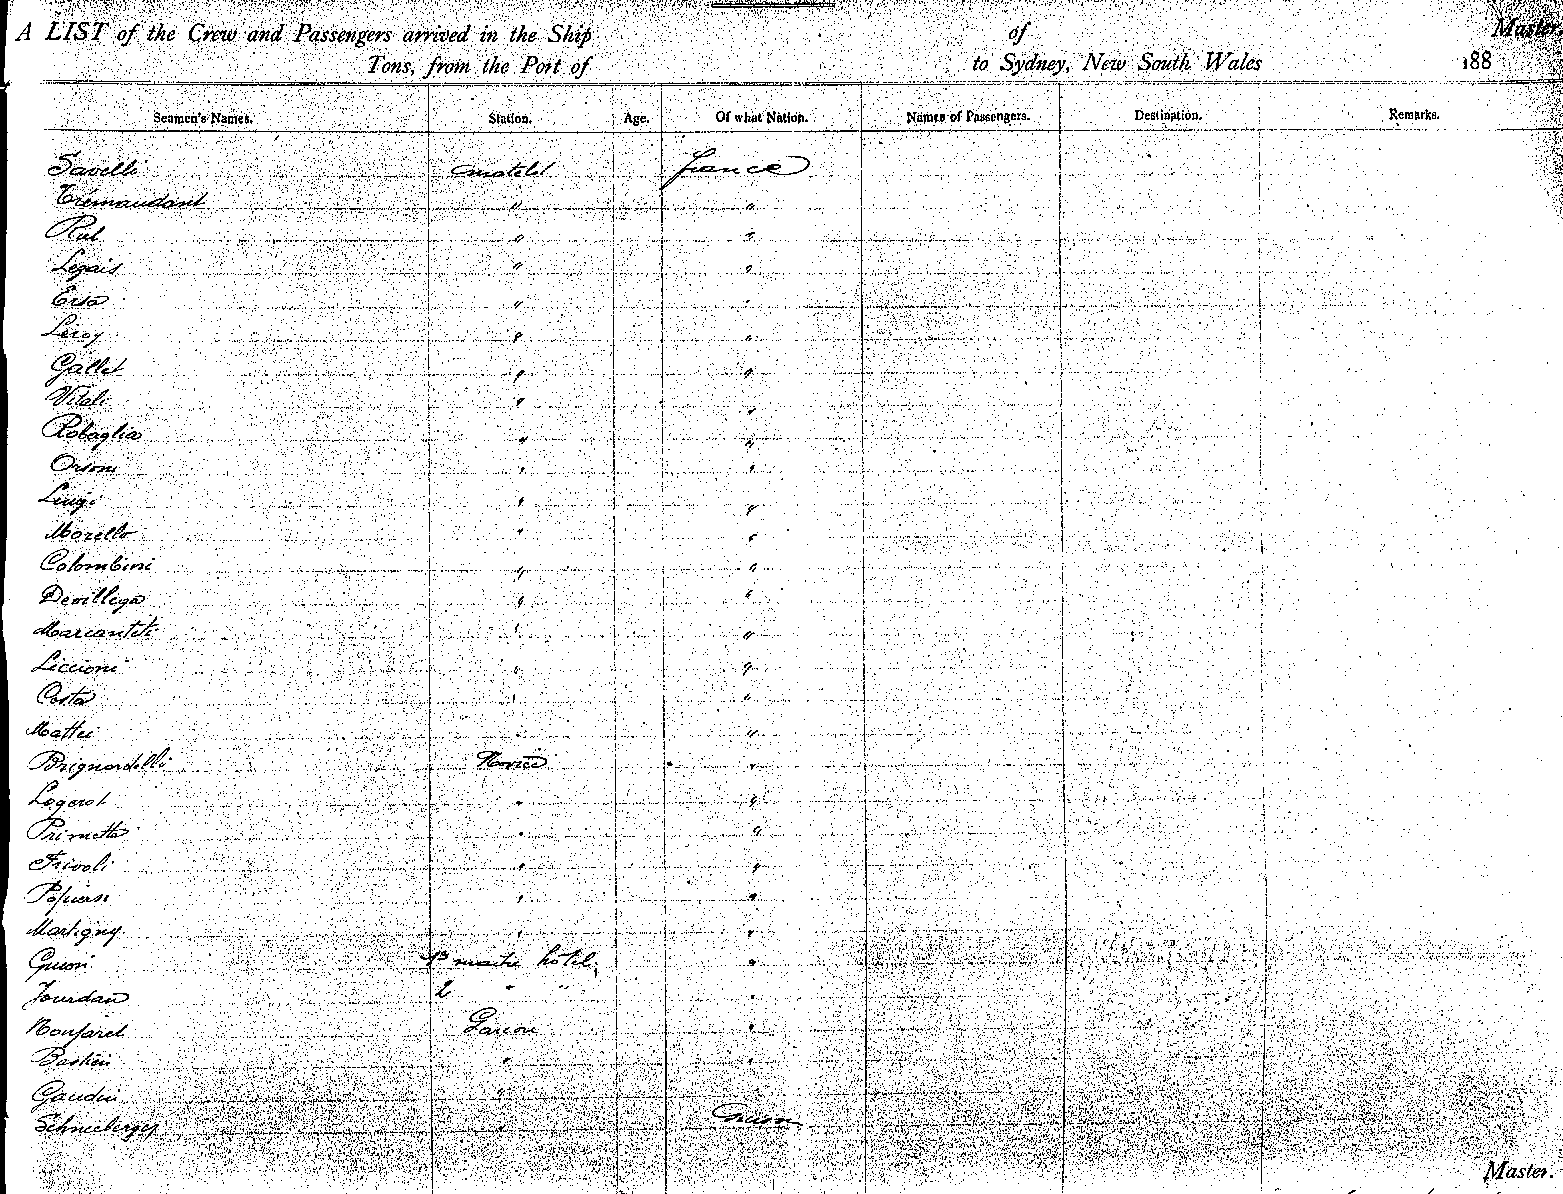 A LIST of the Crew and Passengers arrived in the Ship of Master.
Tons, from the Port of to Sydney, New South Wales 188
Seamen's Names. Station. Age. Of what Nation. Names of Passengers. Destination. Remarks.
Savelli matelot france
Tremaudant " "
Rul " "
Legais " "
Ersa " "
Leroy " "
Gallet " "
Vitali " "
Robaglia " "
Orsoni " "
Luigi " "
Morello " "
Colombini " "
Devillega " "
Marcanteti " "
Liccioni " "
Costa " "
Mattei " "
Brignardelli Novice "
Logerot " "
Primetta " "
Frivoli " "
" "
Martigny " "
Guioni maitre hotel "
Jourdan 2 " " "
Monfaret Garcon "
Bastien " "
Gaudin "
Schneeberger "
Master.